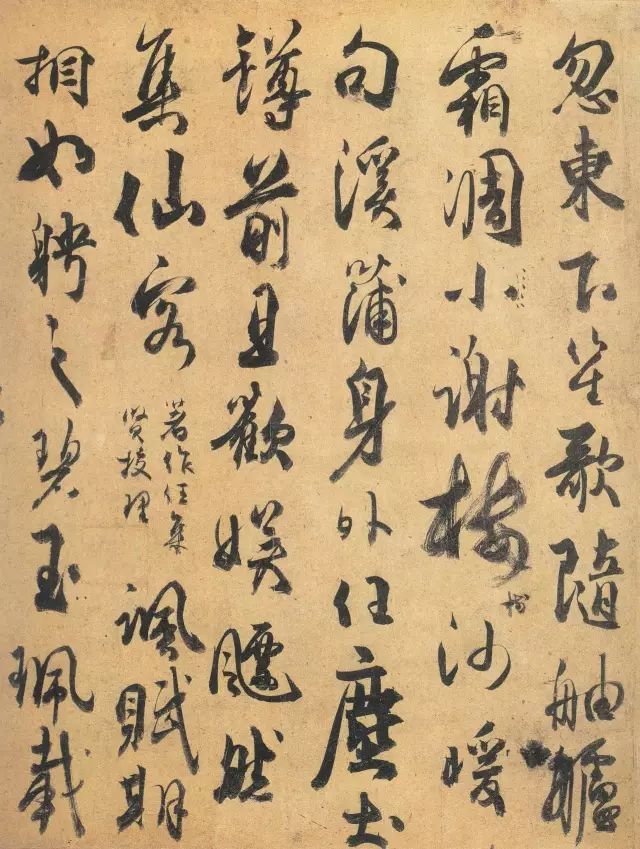 忽東下笙歌隨舳艫
霜凋小謝樓樹沙暖
句溪蒲身外任塵土
罇前且歡娛飄然
集仙客著作任集賢校理諷賦期
相如聘之碧玉珮載